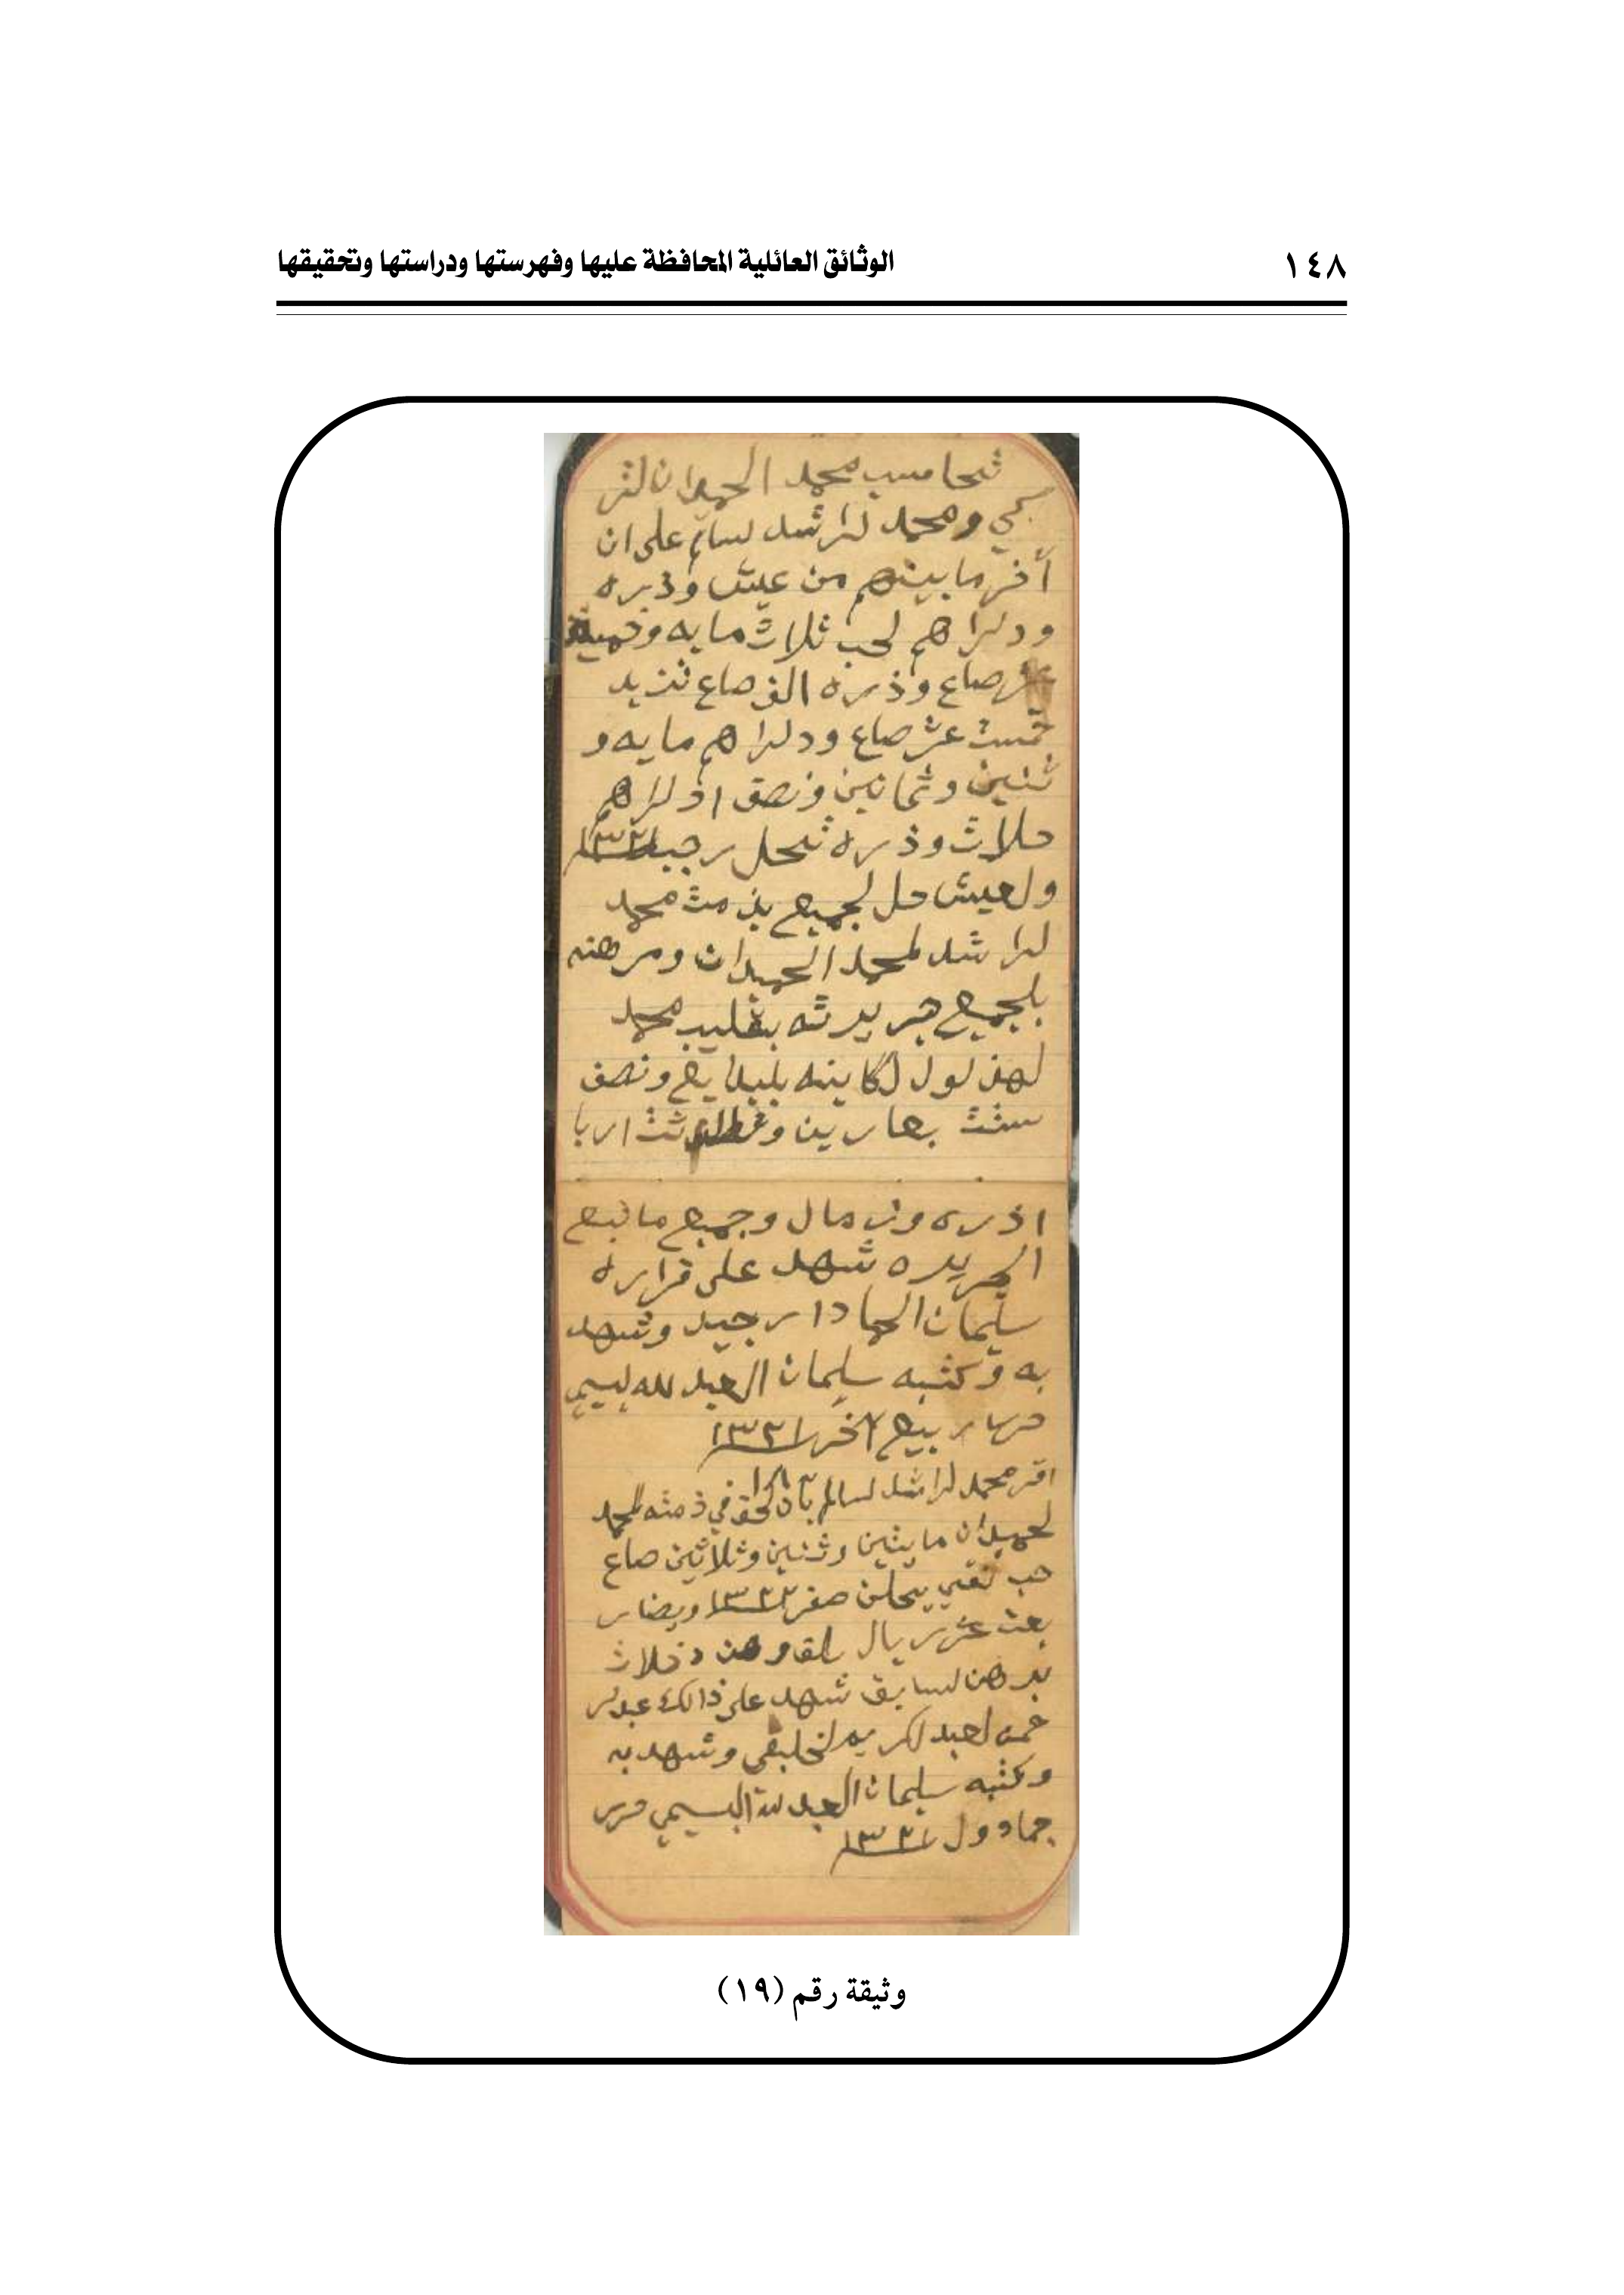 ١٤٨
الوثائق العائلية المحافظة عليها وفهرستها ودراستها وتحقيقها
تحاسب محمد الحميدان لتر
كي ومحمد لراشد لسالم على ان
أخر ما بينهم من عيش وذره
ودراهم لحب ثلاث مايه وخمسة
عشر صاع وذره الف صاع تزيد
خمست عشر صاع ودراهم مايه و
ثنين وثمانين ونصف ادراهم
حلات وذره تحل رجب ١٣٣١
ولعيش حل لجميع بذمت محمد
لراشد لمحمد الحميدان ومرهنه
بلجميع جريرته بقليب محمد
لهذلول لكاينه بلبدايع ونصف
ستت بعارين و ثت اربا
اذره وز مال وجميع ما تبع
الجريره شهد على قراره
سليمان الحماد ارجيد وشهد
به وكتبه سليمان العبد لله لبسيمي
حرر ربيع آخر ١٣٣١
اقر محمد لراشد لسالم بأن لحق في ذمته لمحمد
لحميدان مايتين وثنين وثلاثين صاع
حب نقي يحلن صفر ١٣٣٢ ويضا
بعت عشر ريال وهن دخلات
برهن لسابق شهد على ذالك عبدلر
حمن لعبد لكريم لخليفي وشهد به
وكتبه سليمان العبد لله البسيمي حرر
جماد ول ١٣٣١
وثيقة رقم (١٩)